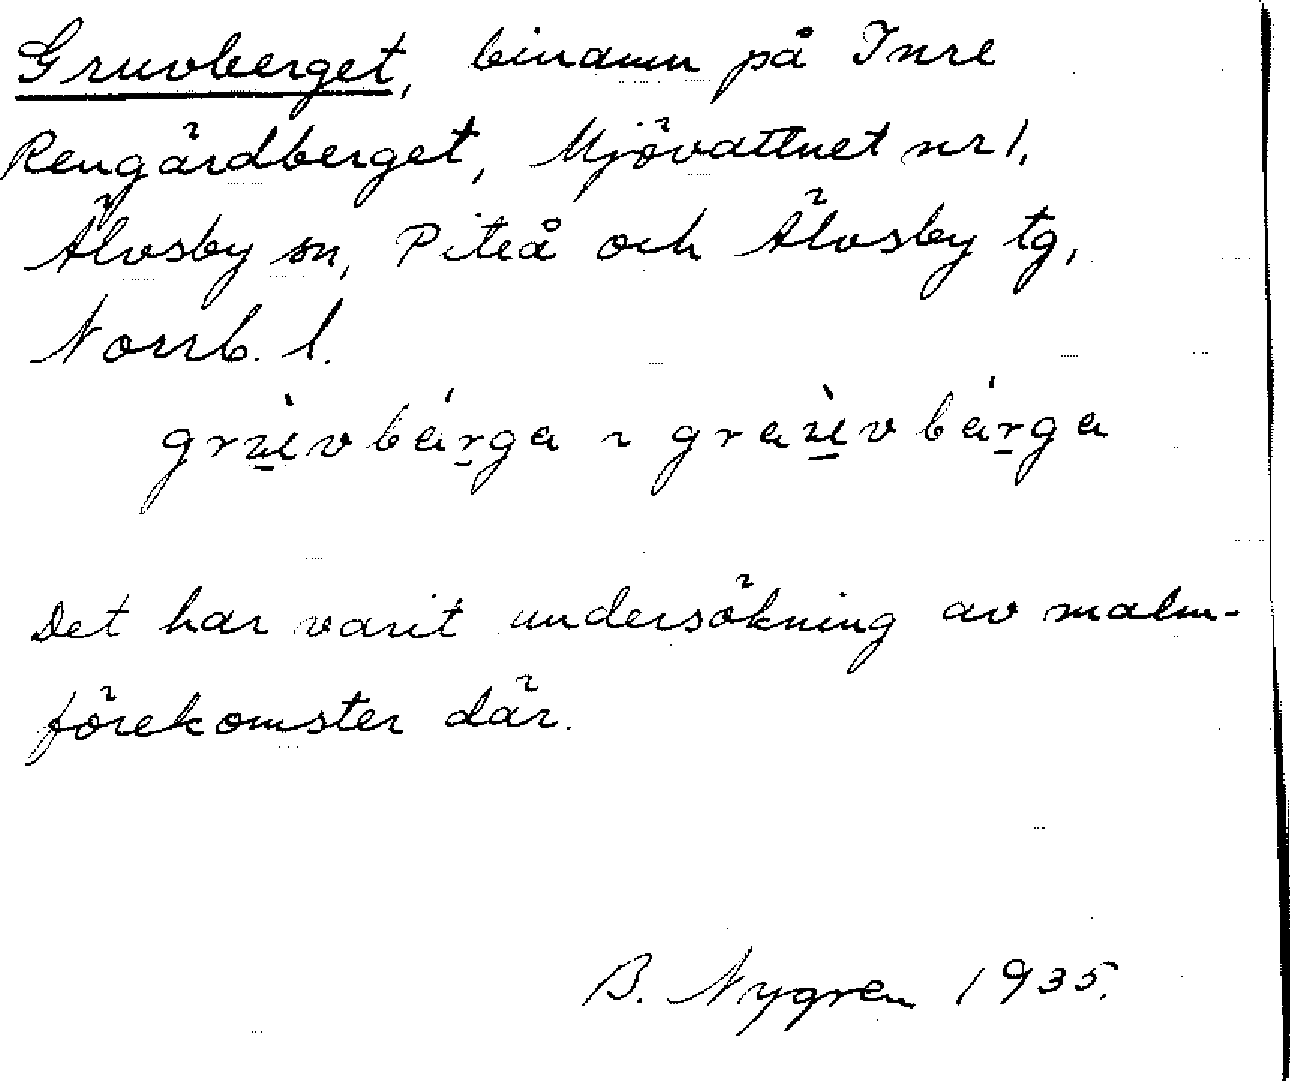 Gruvberget, binamn på Inre
Rengårdberget, Mjövattnet nr 1,
Älvsby sn, Piteå och Älvsby tg,
Norrb. l.
Det har varit undersökning av malm-
förekomster där.
B. Nygren 1935.